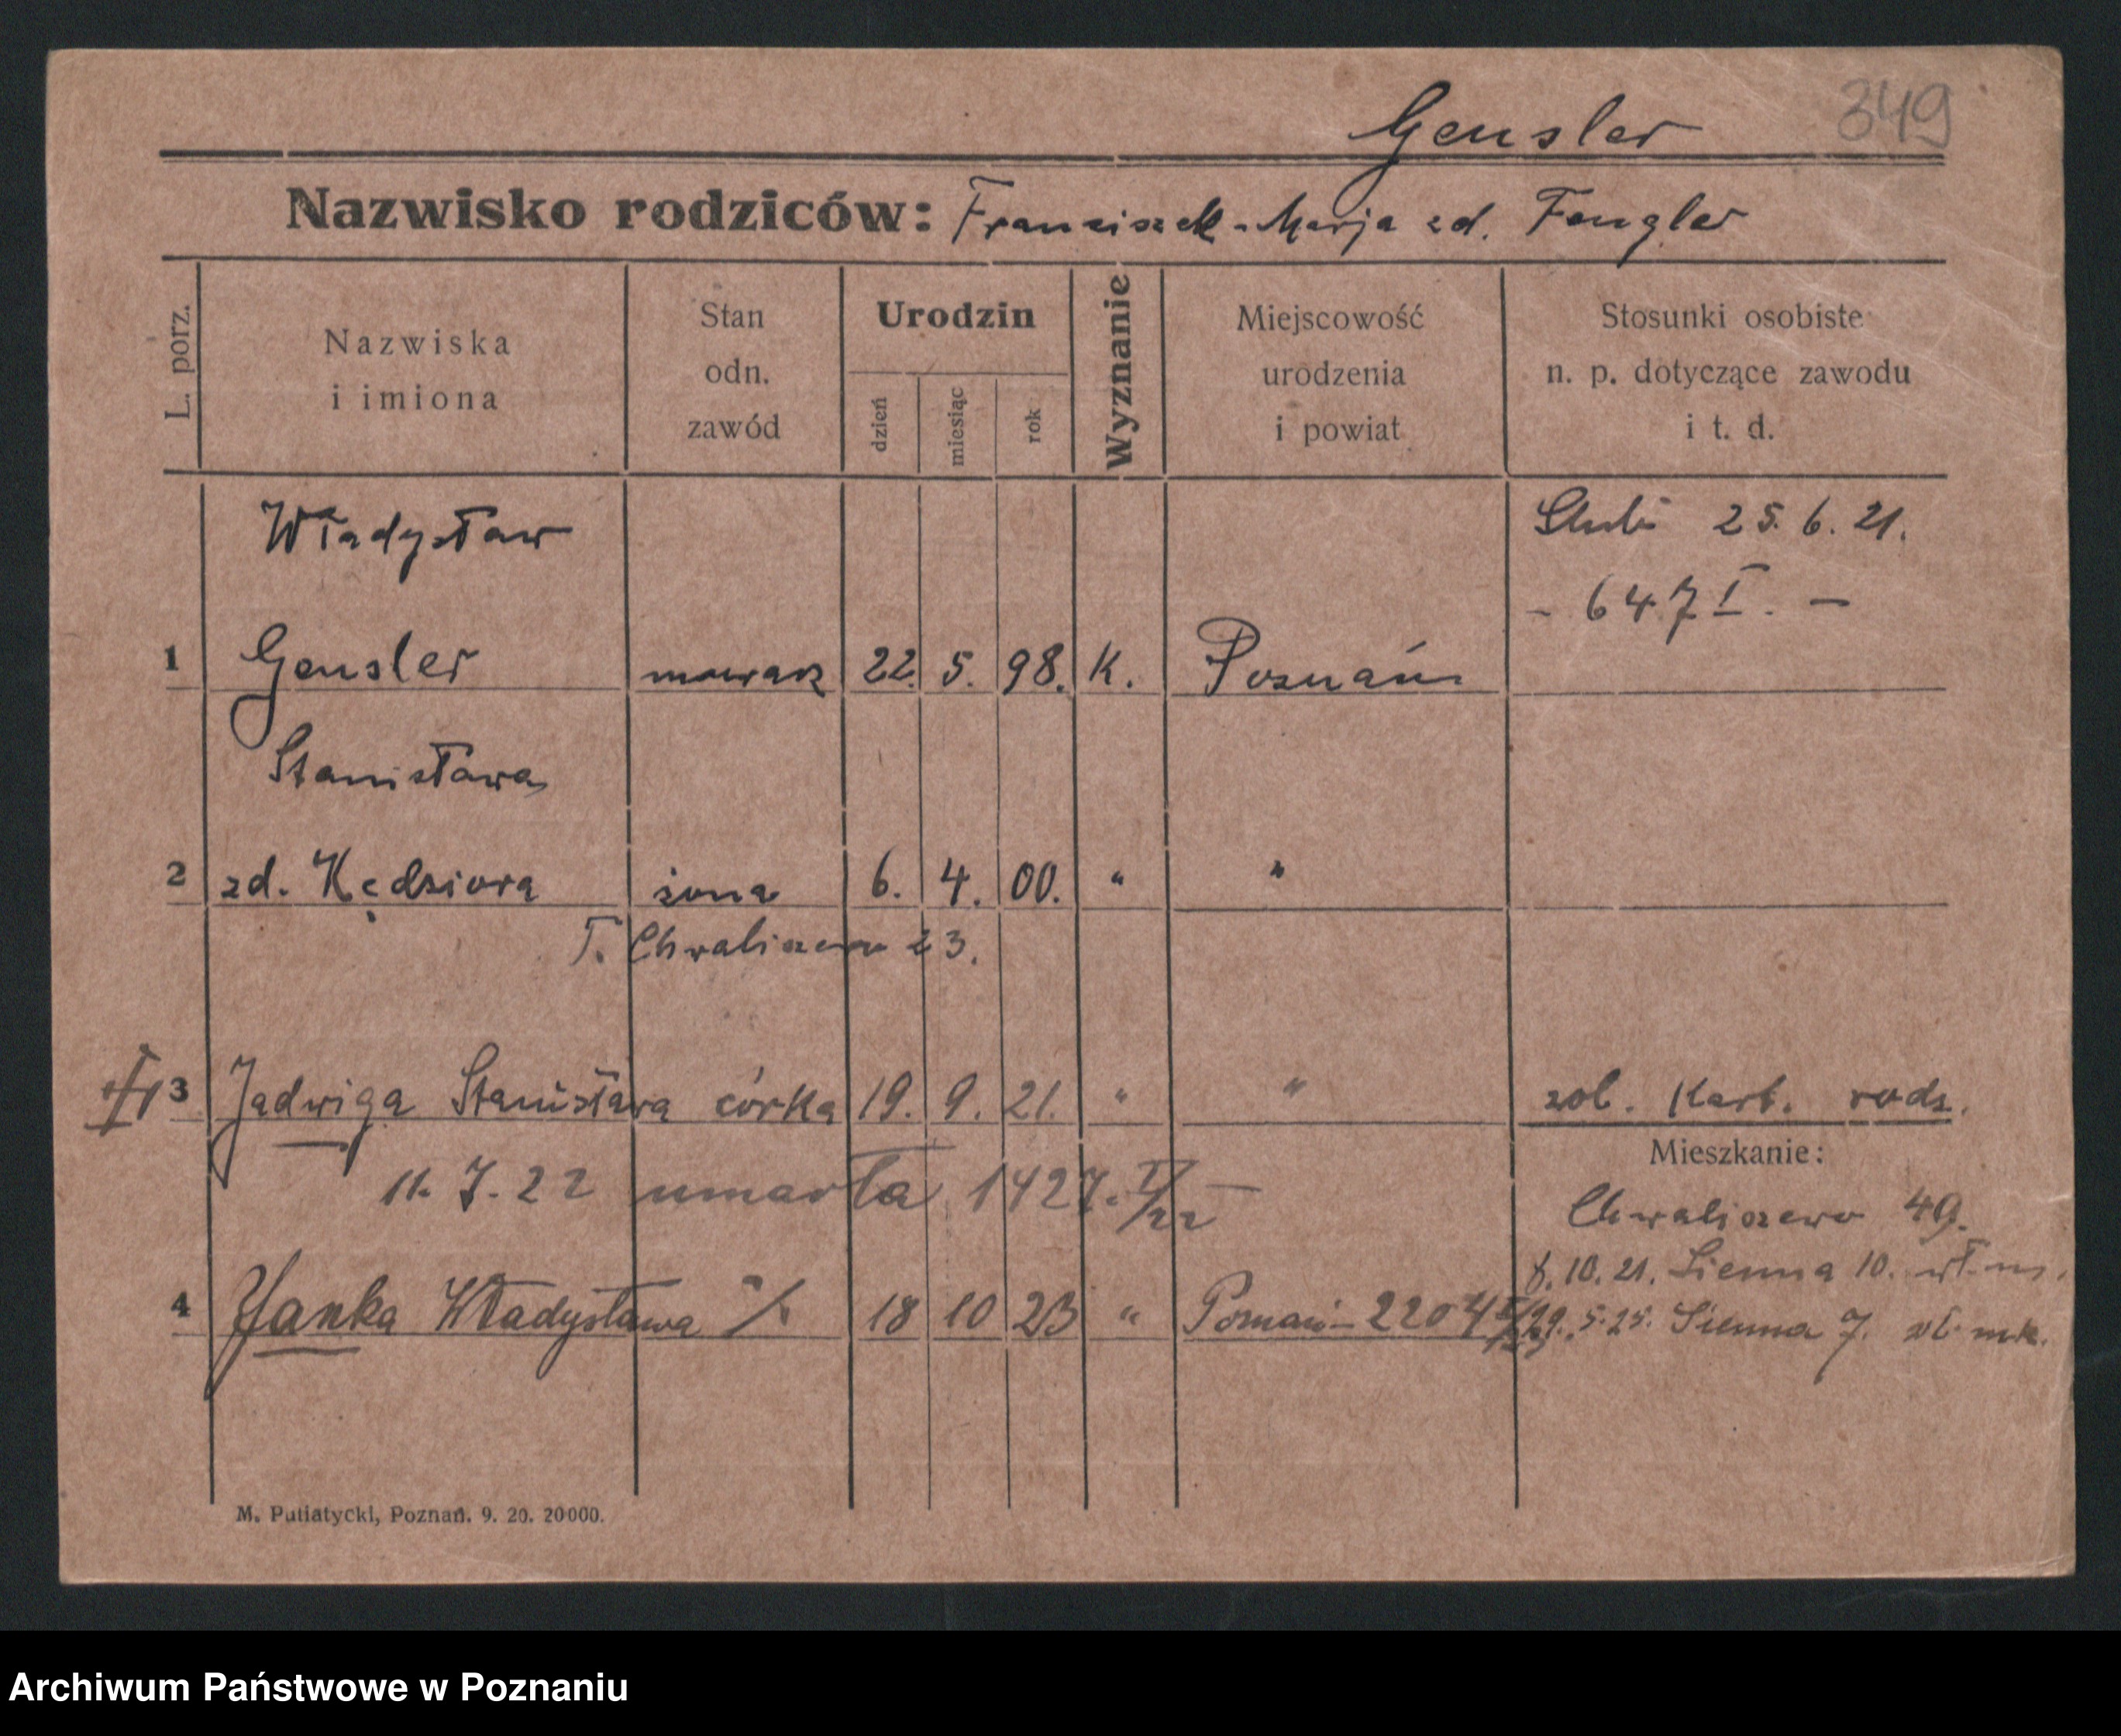 Gensler 349
Nazwisko rodziców: Franciszek - Marja zd. Fengler
L. porz.
Nazwiska i imiona
Stan odn. zawód
Urodzin
dzień miesiąc rok
Wyznanie
Miejscowość urodzenia i powiat
Stosunki osobiste n. p. dotyczące zawodu i t. d.
Władysław
Ślub 25.6.21.
- 647 I. -
1 Gensler 22. 5. 98. K. Poznań
Stanisława
2 zd. Kędziora żona 6. 4. 00. " "
T. Chwaliszewo 23.
3 Jadwiga Stanisława córka 19. 9. 21. " " zob. Kart. rodz.
Mieszkanie:
11.7.22 umarła 1427. I/22 -
Chwaliszewo 49.
8.10.21. Sienna 10.
4 Hanka Władysława 18 10 23 " Poznań - 2204
29.5.25. Sienna 7.
M. Putiatycki, Poznań. 9. 20. 20000.
Archiwum Państwowe w Poznaniu